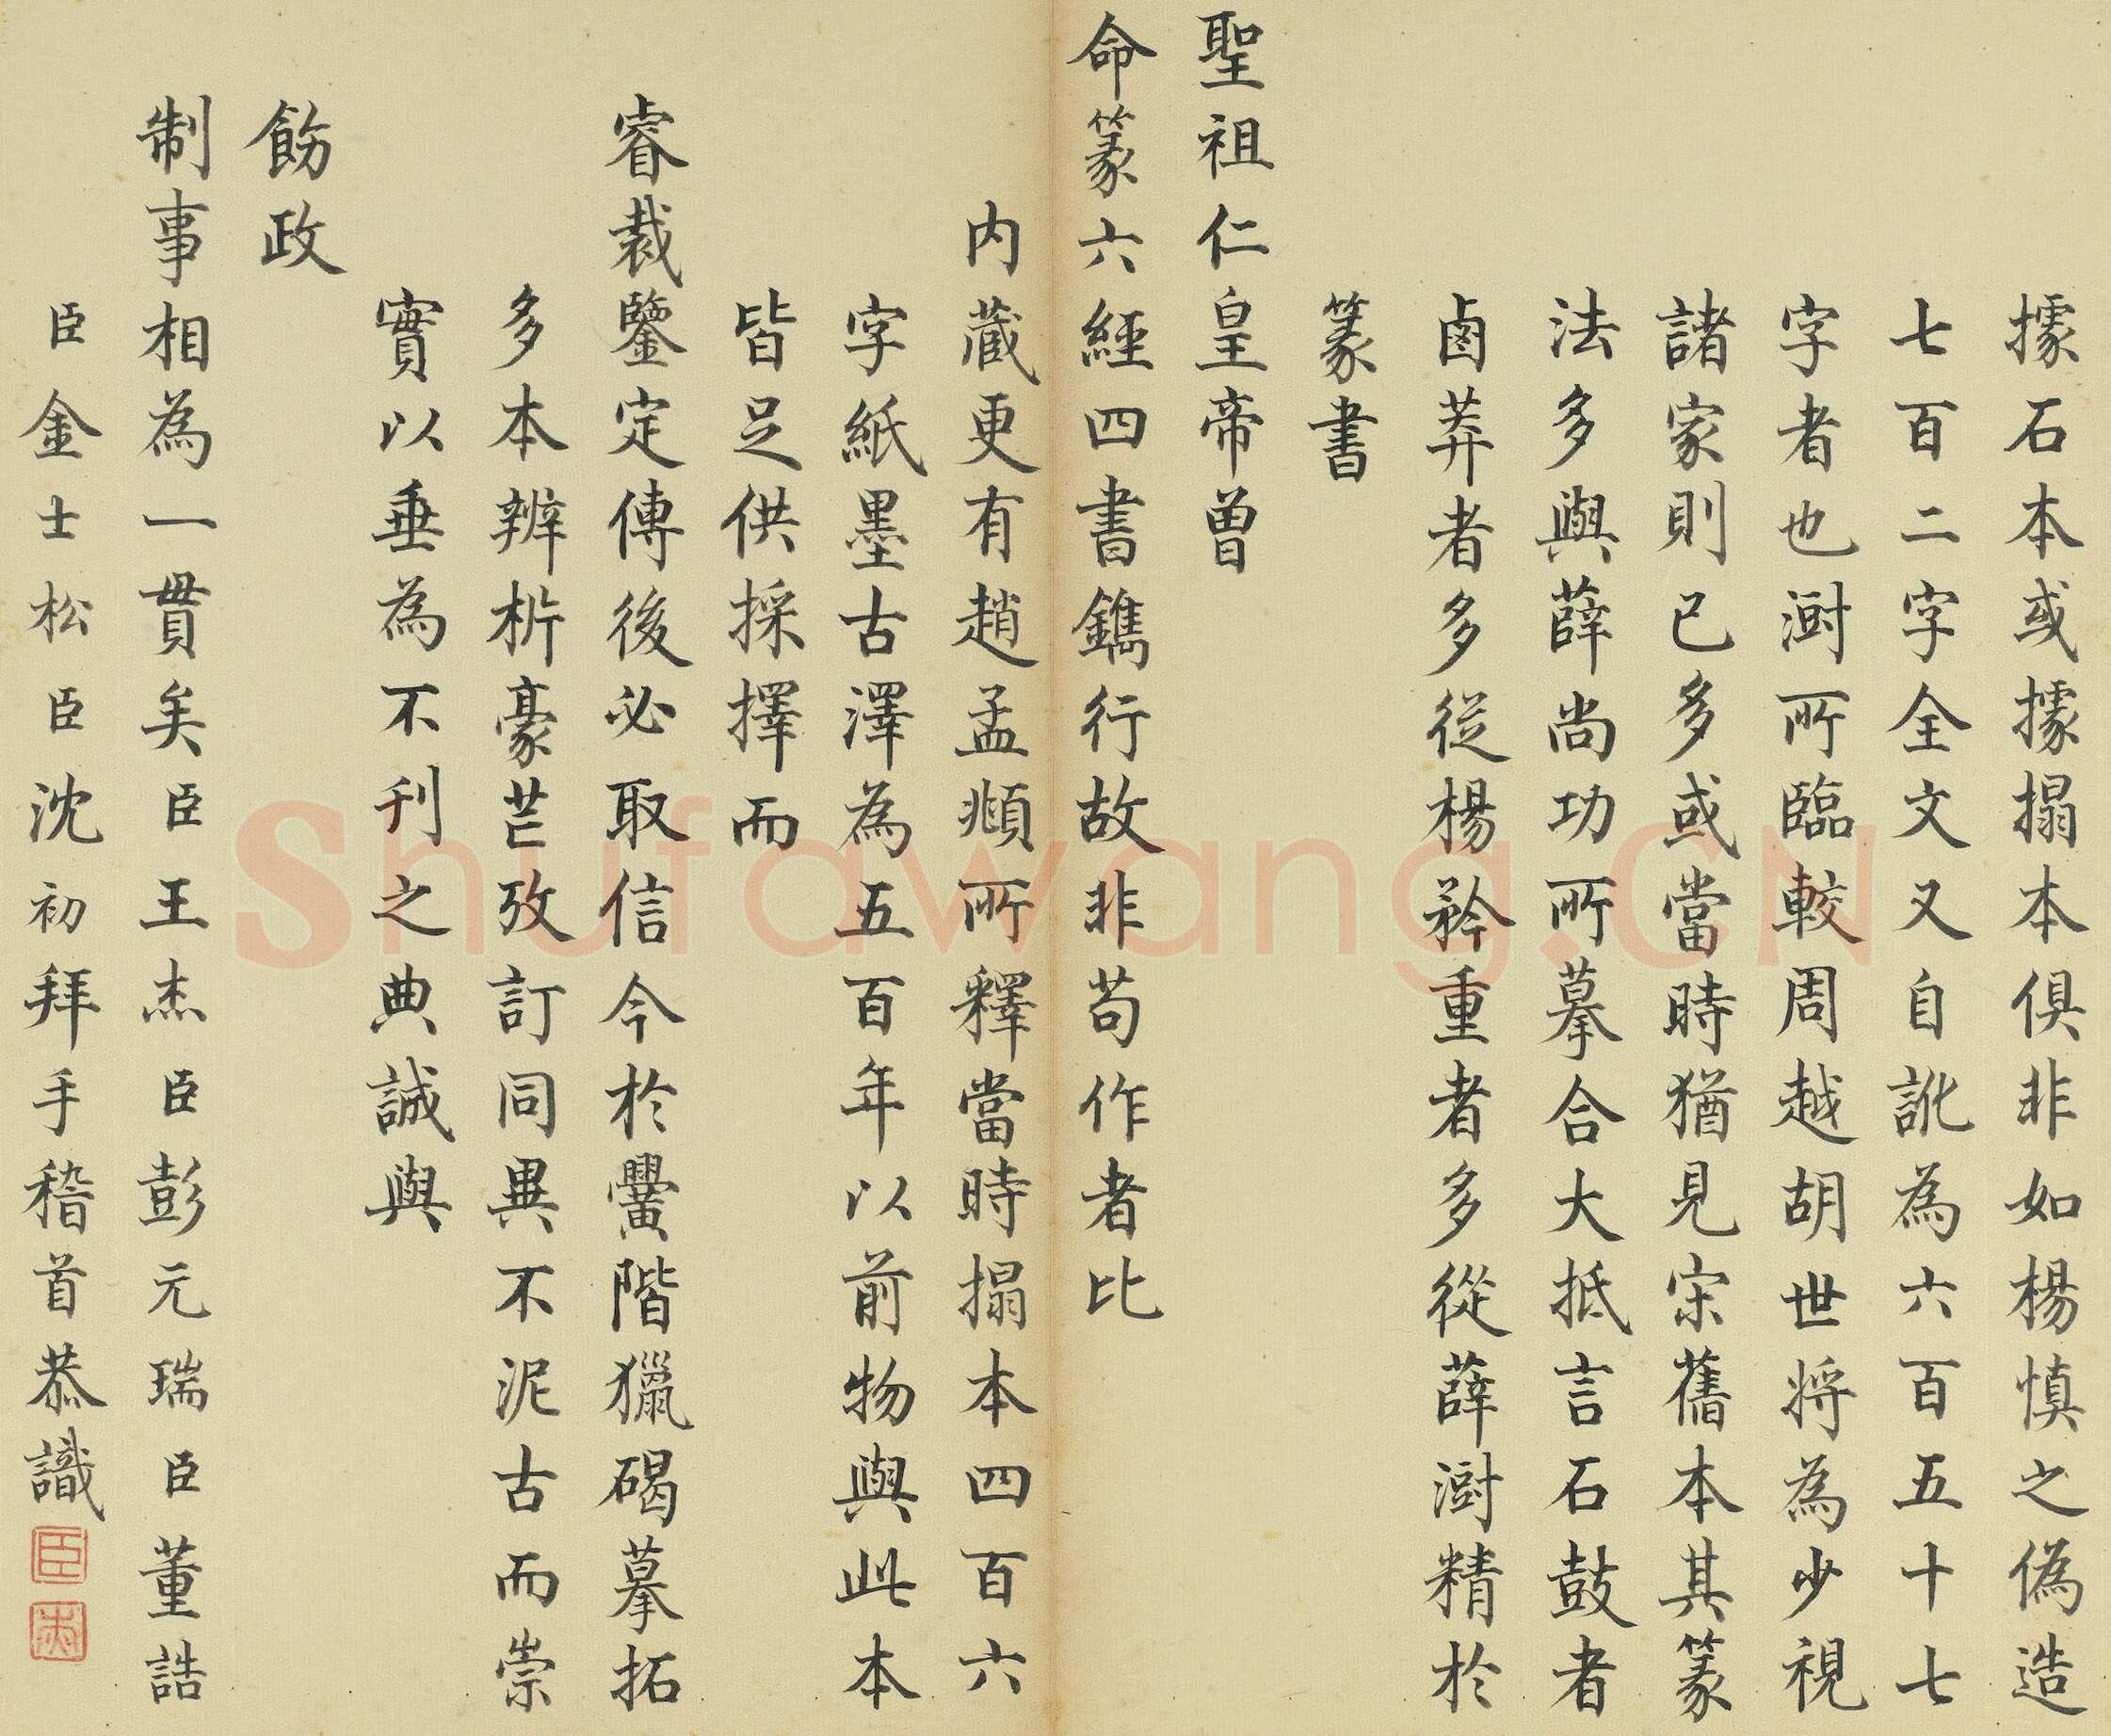 據石本或據搨本俱非如楊慎之偽造
七百二字全文又自訛為六百五十七
字者也澍所臨較周越胡世将為少視
諸家則已多或當時猶見宋舊本其篆
法多與薛尚功所摹合大抵言石鼓者
鹵莽者多從楊矜重者多從薛澍精於
篆書
聖祖仁皇帝曾
命篆六經四書鐫行故非苟作者比
内藏更有趙孟頫所釋當時搨本四百六
字紙墨古澤為五百年以前物與此本
皆足供採擇而
睿裁鑒定傳後必取信今於黌階獵碣摹拓
多本辨析豪芒攷訂同異不泥古而崇
實以垂為不刊之典誠與
飭政
制事相為一貫矣臣王杰臣彭元瑞臣董誥
臣金士松臣沈初拜手稽首恭識
臣
Shufawang.CN